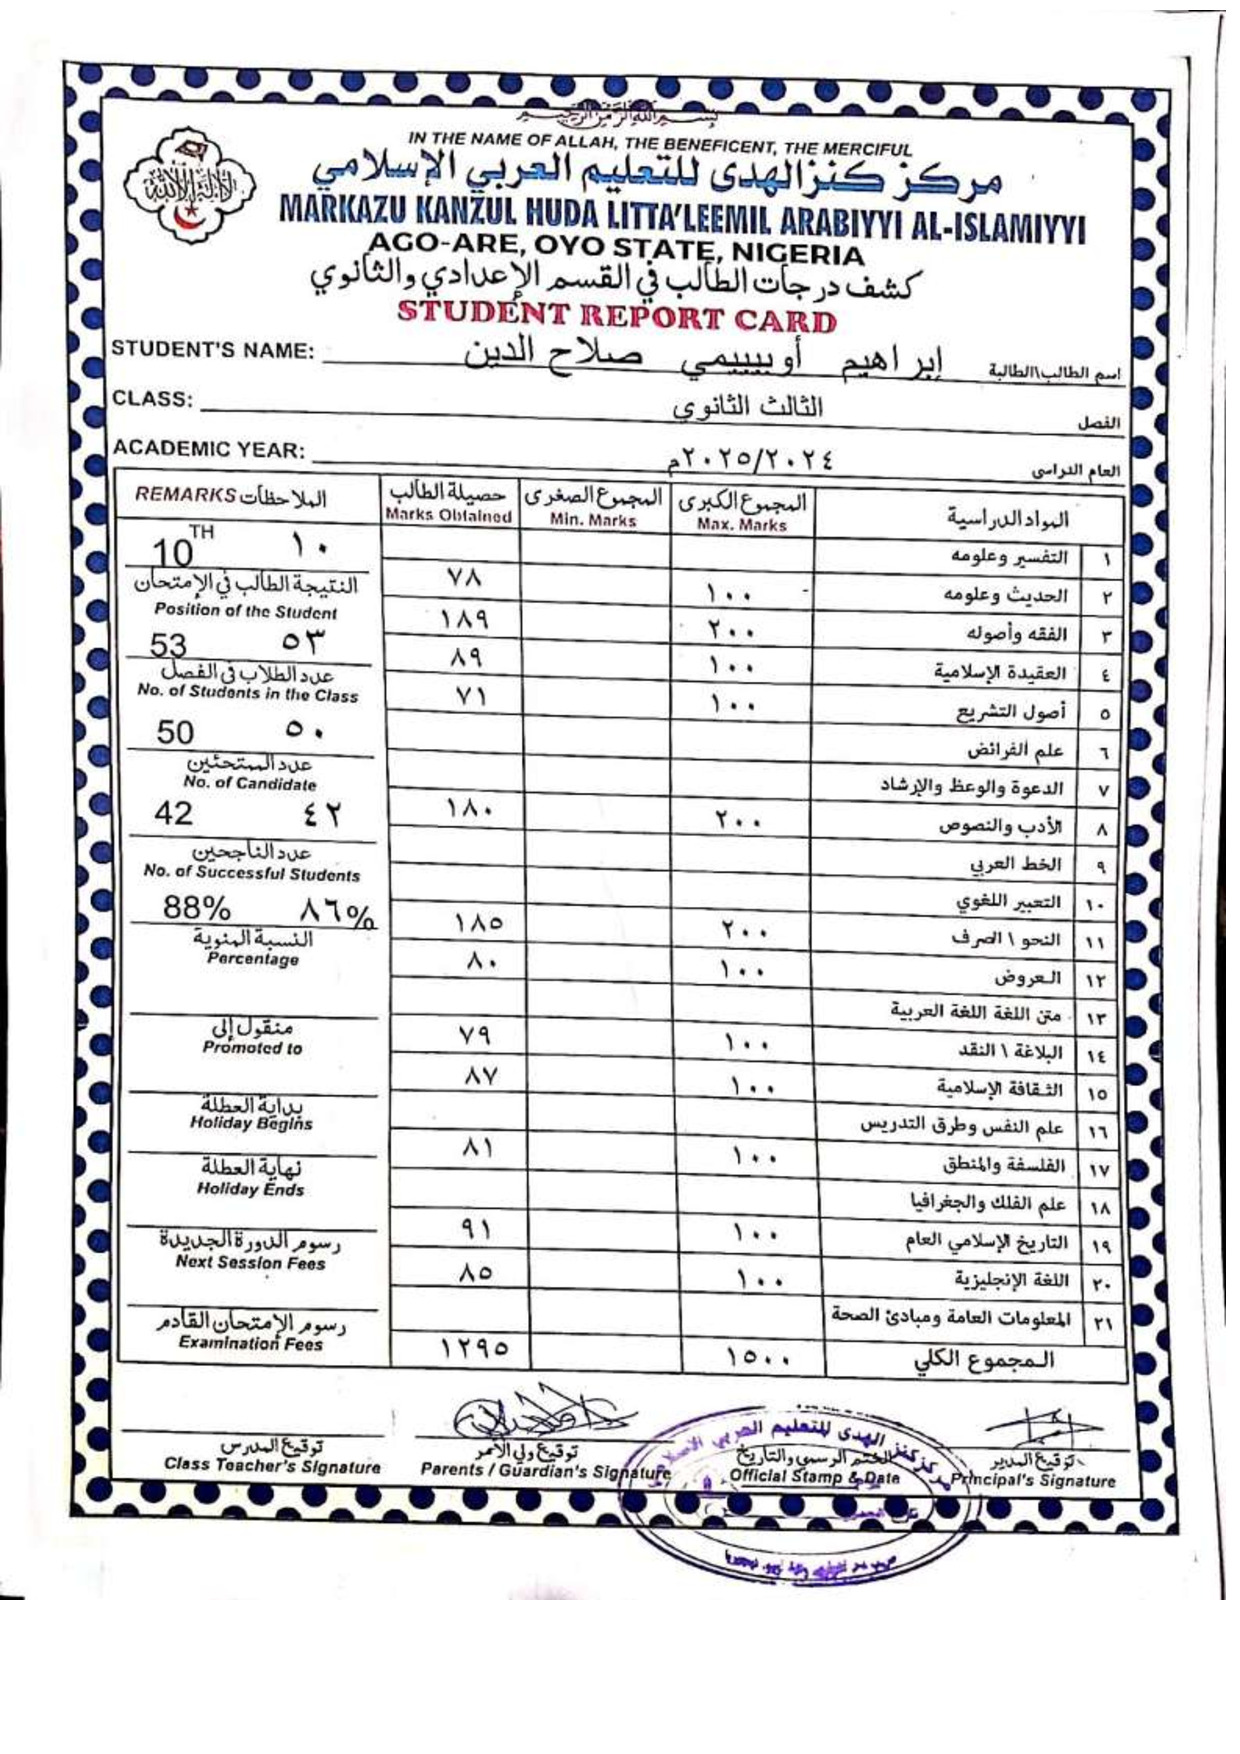 بسم الله الرحمن الرحيم
IN THE NAME OF ALLAH, THE BENEFICENT, THE MERCIFUL
مركز كنز الهدى للتعليم العربي الإسلامي
MARKAZU KANZUL HUDA LITTA'LEEMIL ARABIYYI AL-ISLAMIYYI
AGO-ARE, OYO STATE, NIGERIA
كشف درجات الطالب في القسم الإعدادي والثانوي
STUDENT REPORT CARD
STUDENT'S NAME: إبراهيم أويبيمي صلاح الدين اسم الطالب\الطالبة
CLASS: الثالث الثانوي الفصل
ACADEMIC YEAR: ٢٠٢٥/٢٠٢٤م العام الدراسى
المواد الدراسية المجموع الكبرى المجموع الصغرى حصيلة الطالب الملاحظات REMARKS
Max. Marks Min. Marks Marks Obtained
١ التفسير وعلومه
٢ الحديث وعلومه ١٠٠ ٧٨
٣ الفقه وأصوله ٢٠٠ ١٨٩
٤ العقيدة الإسلامية ١٠٠ ٨٩
٥ أصول التشريع ١٠٠ ٧١
٦ علم الفرائض
٧ الدعوة والوعظ والإرشاد
٨ الأدب والنصوص ٢٠٠ ١٨٠
٩ الخط العربي
١٠ التعبير اللغوي
١١ النحو \ الصرف ٢٠٠ ١٨٥
١٢ العروض ١٠٠ ٨٠
١٣ متن اللغة اللغة العربية
١٤ البلاغة \ النقد ١٠٠ ٧٩
١٥ الثقافة الإسلامية ١٠٠ ٨٧
١٦ علم النفس وطرق التدريس
١٧ الفلسفة والمنطق ١٠٠ ٨١
١٨ علم الفلك والجغرافيا
١٩ التاريخ الإسلامي العام ١٠٠ ٩١
٢٠ اللغة الإنجليزية ١٠٠ ٨٥
٢١ المعلومات العامة ومبادئ الصحة
المجموع الكلي ١٥٠٠ ١٢٩٥
10TH ١٠
النتيجة الطالب في الإمتحان
Position of the Student
53 ٥٣
عدد الطلاب في الفصل
No. of Students in the Class
50 ٥٠
عدد الممتحنين
No. of Candidate
42 ٤٢
عدد الناجحين
No. of Successful Students
88% ٨٦%
النسبة المئوية
Percentage
منقول إلى
Promoted to
بداية العطلة
Holiday Begins
نهاية العطلة
Holiday Ends
رسوم الدورة الجديدة
Next Session Fees
رسوم الإمتحان القادم
Examination Fees
توقيع المدرس
Class Teacher's Signature
توقيع ولي الأمر
Parents / Guardian's Signature
الختم الرسمي والتاريخ
Official Stamp & Date
توقيع المدير
Principal's Signature
مركز كنز الهدى للتعليم العربي الإسلامي